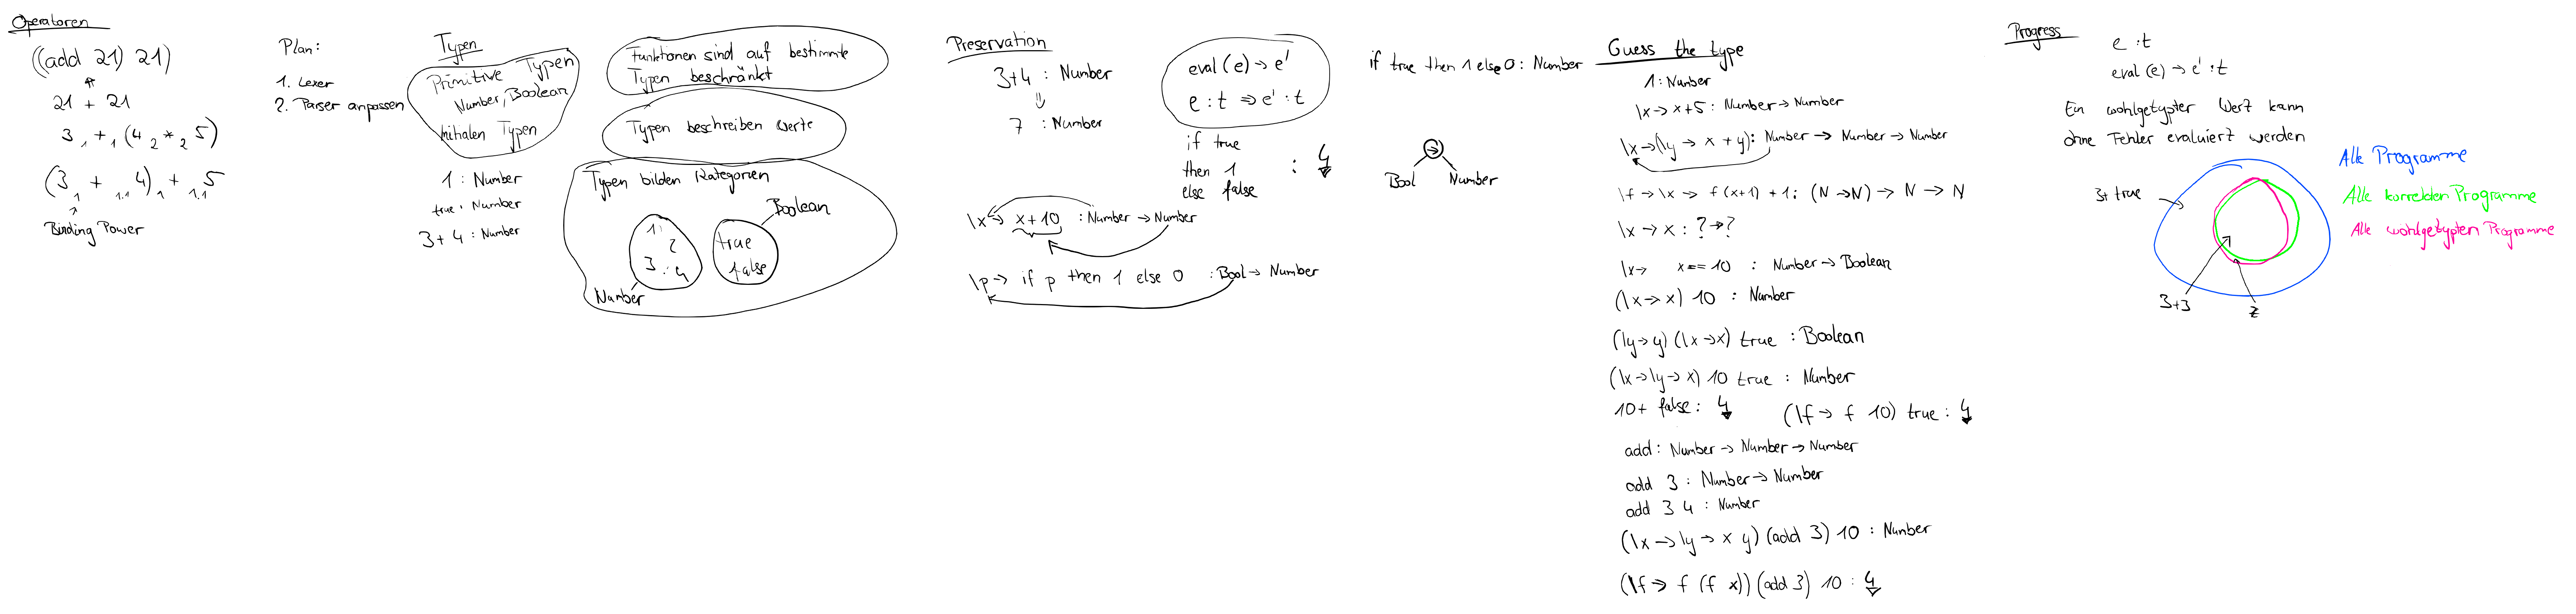 Operatoren
((add 21) 21)
21 + 21
3 1 + 1 (4 2 * 2 5)
(3 1 + 1.1 4) 1 + 1.1 5
Binding Power
Plan:
1. Lexer
2. Parser anpassen
Typen
Primitive Typen
Number, Boolean
mihalen Typen
1 : Number
true : Number
3+4 : Number
Funktionen sind auf bestimmte
Typen beschränkt
Typen beschreiben Werte
Typen bilden Kategorien
Boolean
1
2
3
4
true
false
Number
Preservation
3+4 : Number
⇓
7 : Number
eval (e) → e'
e : t ⇒ e' : t
if true
then 1 : ↯
else false
\x → x + 10 : Number → Number
\p → if p then 1 else 0 : Bool → Number
if true then 1 else 0 : Number
→
Bool Number
Guess the type
1 : Number
\x → x + 5 : Number → Number
\x → (\y → x + y) : Number → Number → Number
\f → \x → f (x+1) + 1 : (N → N) → N → N
\x → x : ? → ?
\x → x == 10 : Number → Boolean
(\x → x) 10 : Number
(\y → y) (\x → x) true : Boolean
(\x → \y → x) 10 true : Number
10 + false : ↯ (\f → f 10) true : ↯
add : Number → Number → Number
add 3 : Number → Number
add 3 4 : Number
(\x → \y → x y) (add 3) 10 : Number
(\f → f (f x)) (add 3) 10 : ↯
Progress
e : t
eval (e) → e' : t
Ein wohlgetypter Wert kann
ohne Fehler evaluiert werden
Alle Programme
Alle korrekten Programme
Alle wohlgetypten Programme
3 + true
3+3